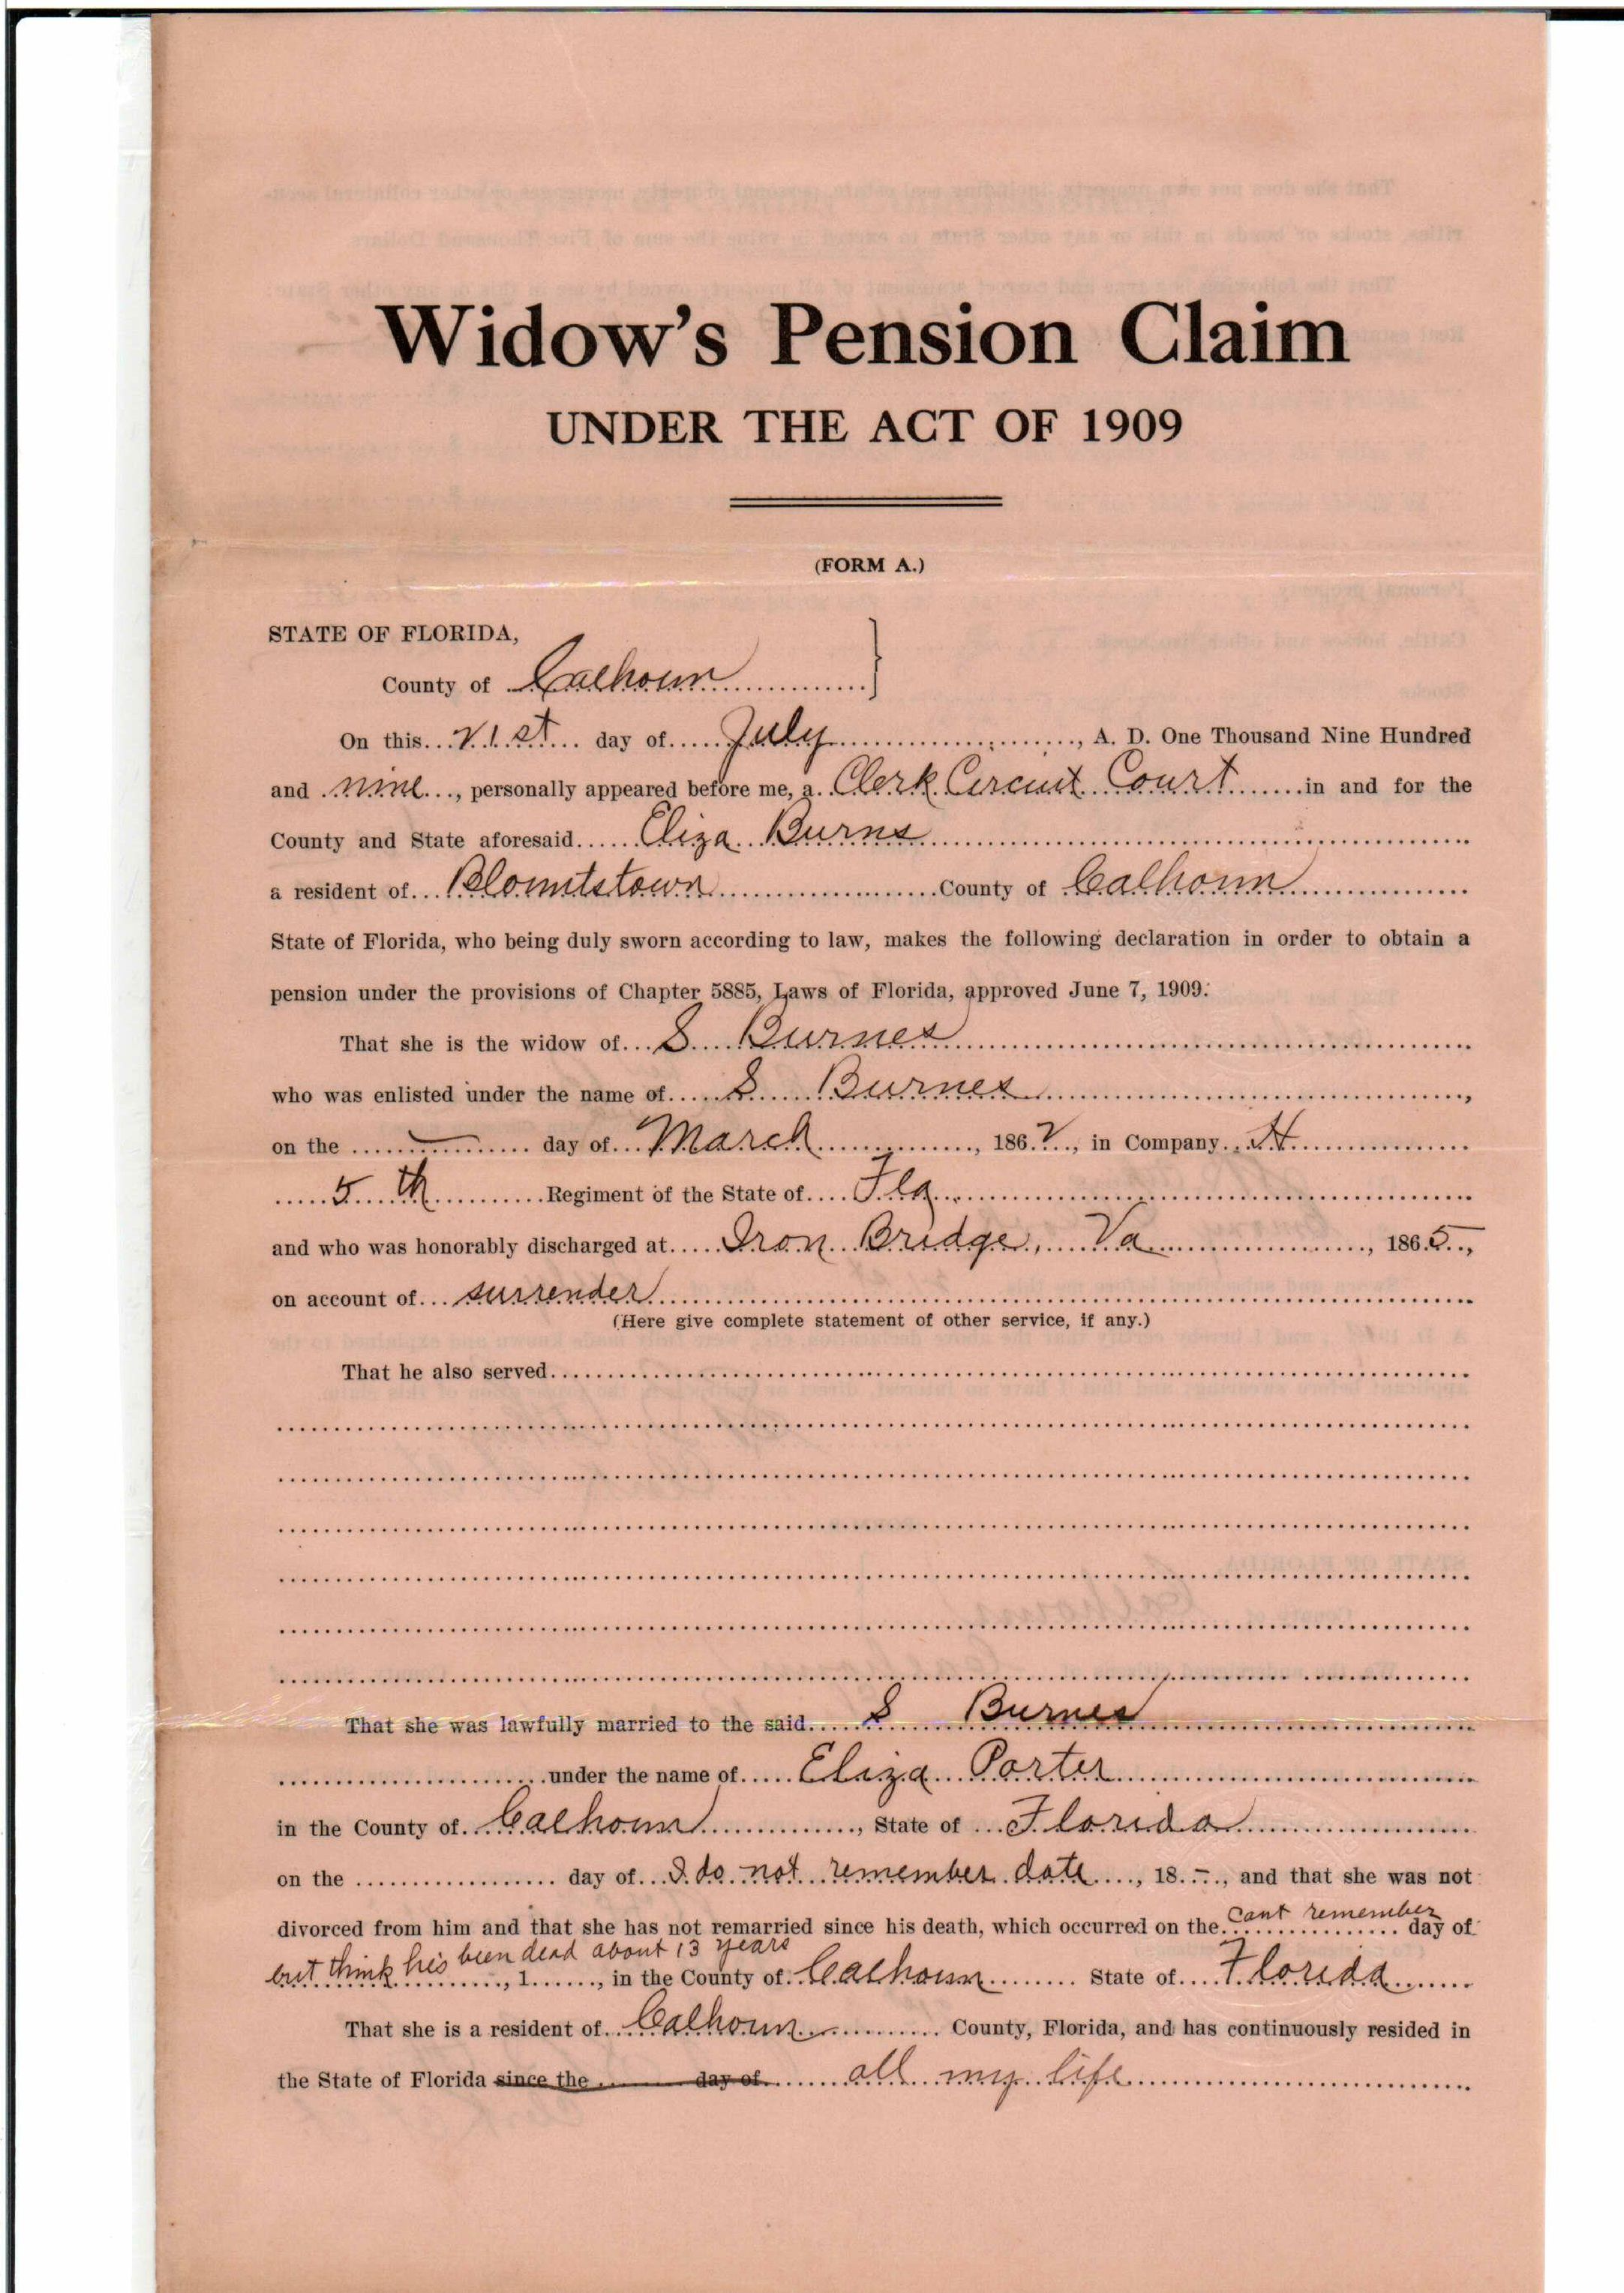 Widow's Pension Claim
UNDER THE ACT OF 1909
(FORM A.)
STATE OF FLORIDA,
County of Calhoun
On this 21st day of July, A. D. One Thousand Nine Hundred
and nine, personally appeared before me, a Clerk Circuit Court in and for the
County and State aforesaid Eliza Burns
a resident of Blountstown County of Calhoun
State of Florida, who being duly sworn according to law, makes the following declaration in order to obtain a
pension under the provisions of Chapter 5885, Laws of Florida, approved June 7, 1909.
That she is the widow of S Burnes
who was enlisted under the name of S Burnes,
on the — day of March, 1862, in Company H
5th Regiment of the State of Fla.
and who was honorably discharged at Iron Bridge, Va, 1865,
on account of surrender
(Here give complete statement of other service, if any.)
That he also served
That she was lawfully married to the said S Burnes
under the name of Eliza Porter
in the County of Calhoun, State of Florida
on the day of I do not remember date, 18—, and that she was not
divorced from him and that she has not remarried since his death, which occurred on the cant remember day of
but think his been dead about 13 years, 1, in the County of Calhoun State of Florida
That she is a resident of Calhoun County, Florida, and has continuously resided in
the State of Florida since the day of all my life